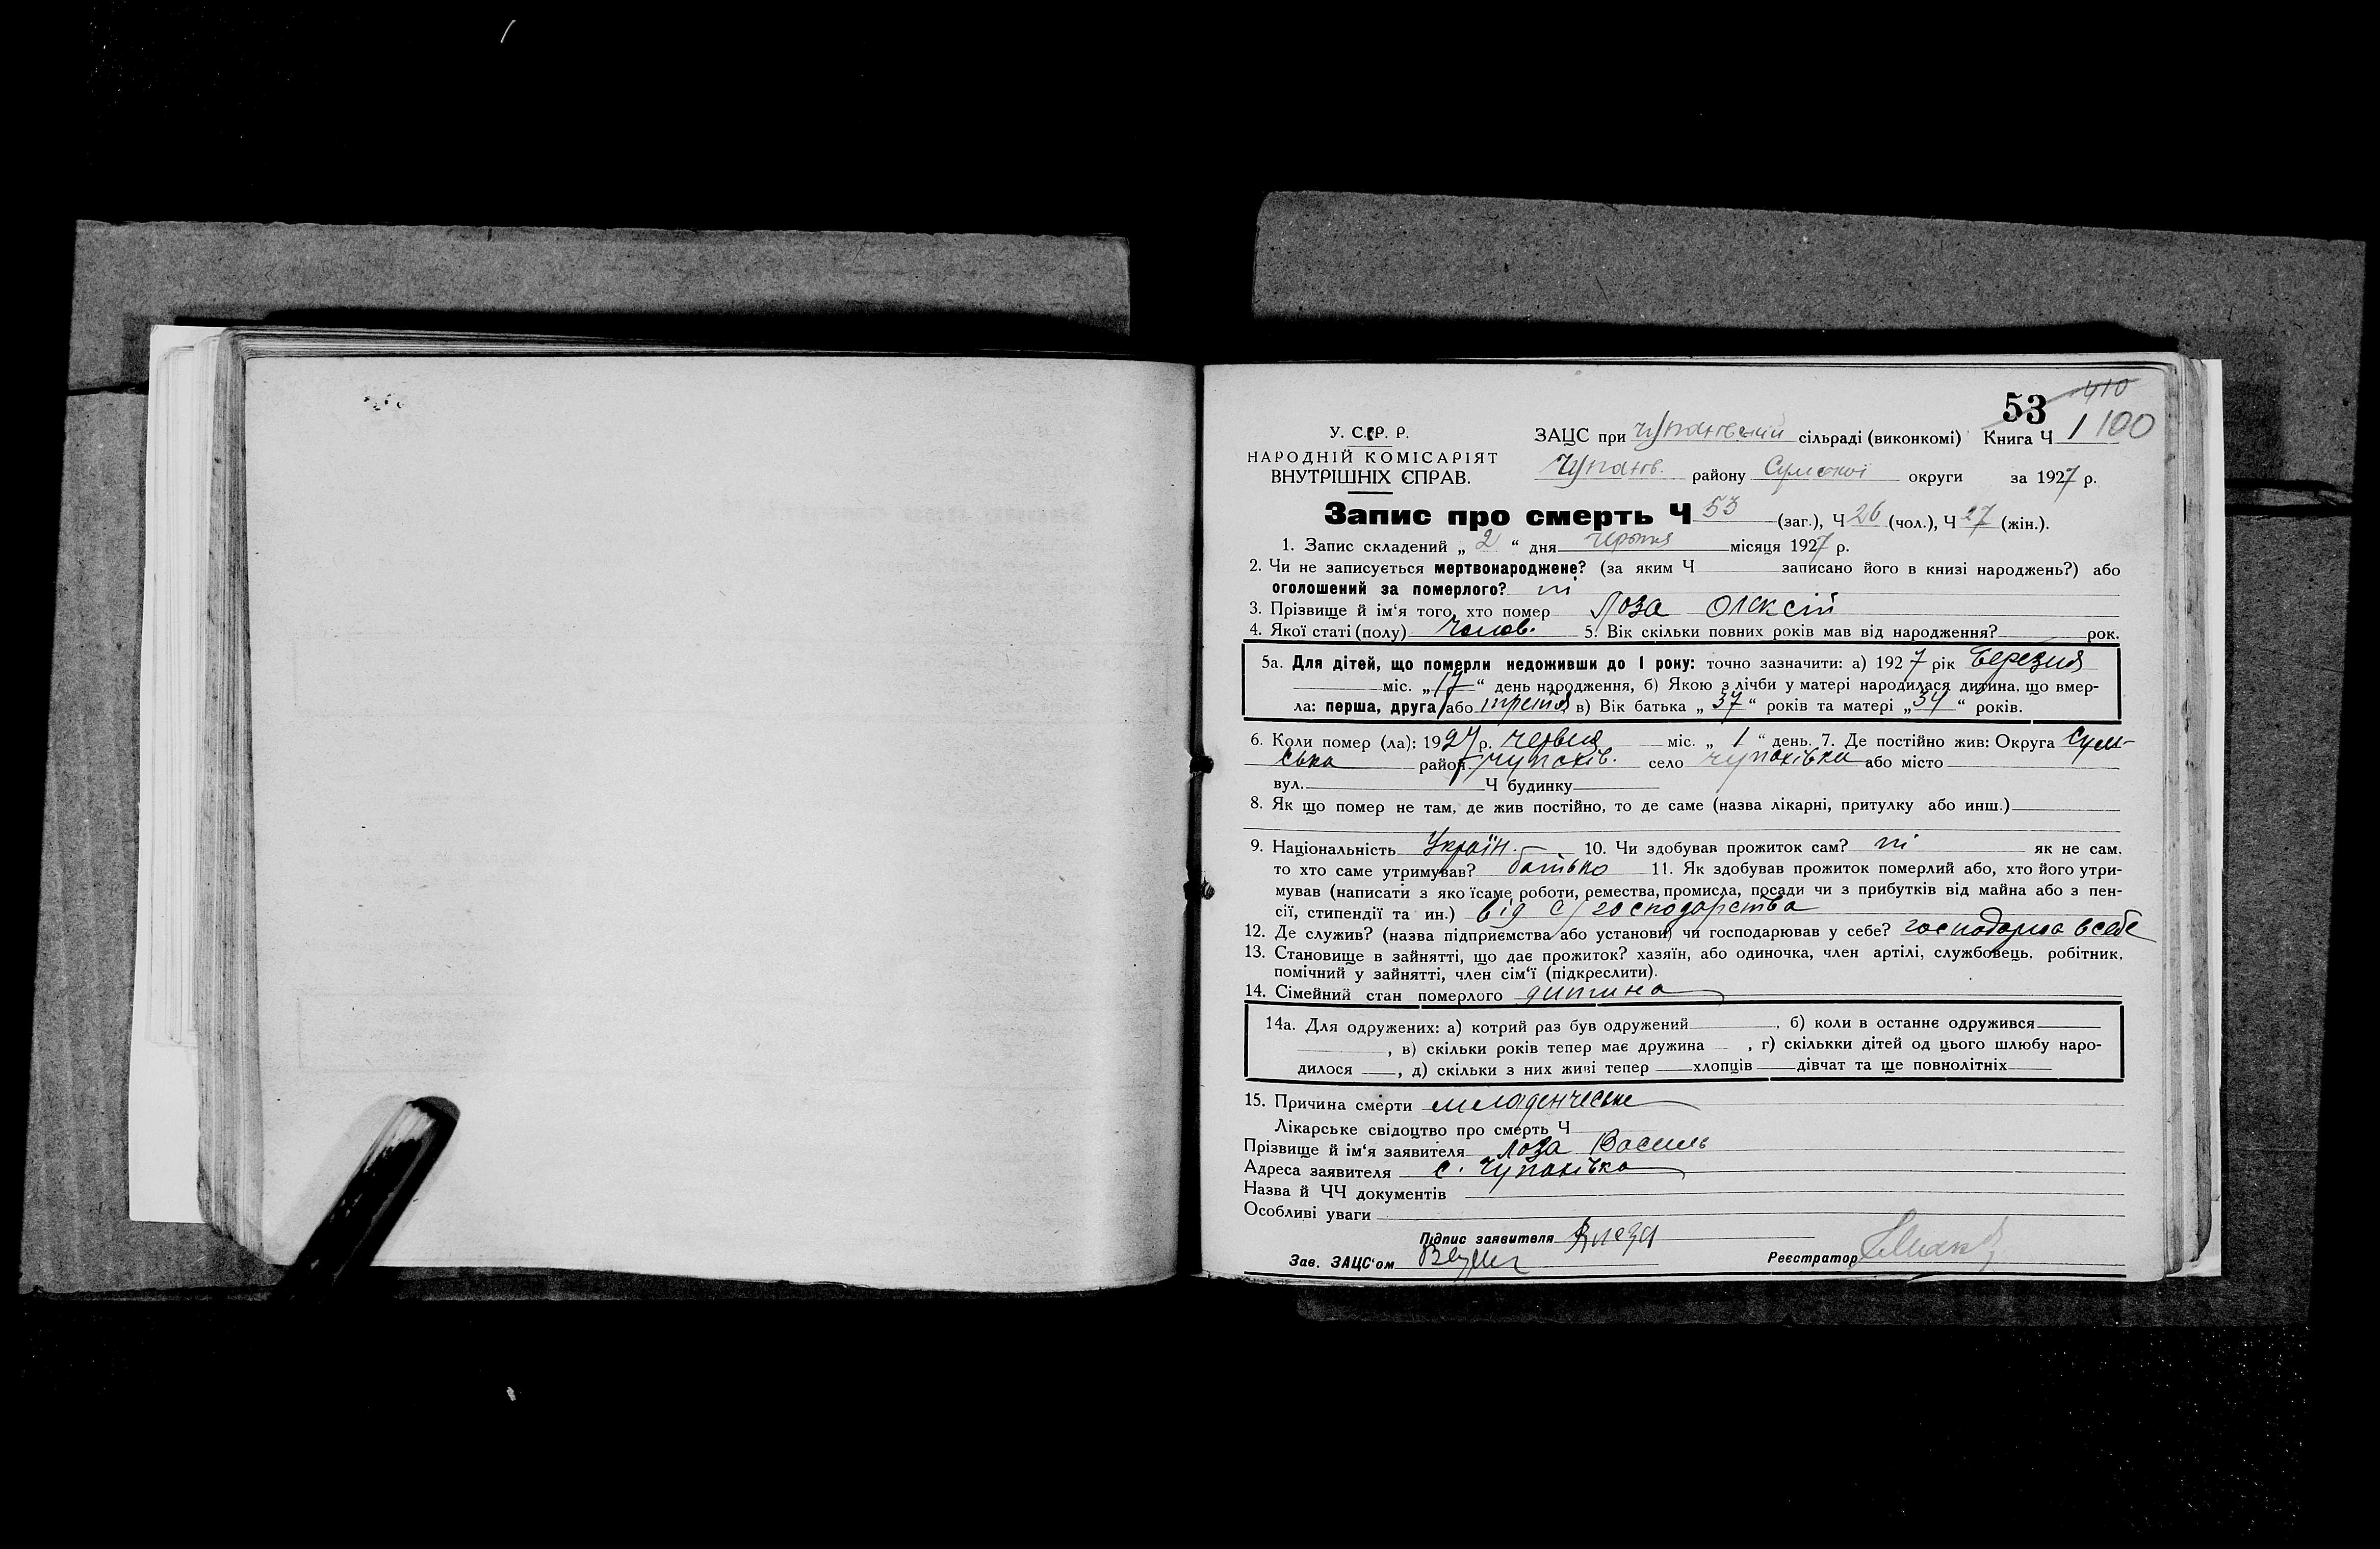 410
53
1 100
У. С.С.Р. Р.
НАРОДНІЙ КОМІСАРІЯТ
ВНУТРІШНІХ СПРАВ.
ЗАЦС при сільраді (виконкомі) Книга Ч
Чупахів. району Сумської округи за 1927 р.
Запис про смерть Ч 53 (заг.), Ч 26 (чол.), Ч 27 (жін.).
1. Запис складений „ 2 “ дня червня місяця 1927 р.
2. Чи не записується мертвонароджене? (за яким Ч записано його в книзі народжень?) або
оголошений за померлого? ні
3. Прізвище й ім‘я того, хто помер Лоза Олексій
4. Якої статі (полу) Чолов. 5. Вік скільки повних років мав від народження? рок.
5а. Для дітей, що померли недоживши до 1 року: точно зазначити: а) 1927 рік Березня
міс. „ 17 “ день народження, б) Якою з лічби у матері народилася дитина, що вмер-
ла: перша, друга або третя в) Вік батька „ 37 “ років та матері „ 34 “ років.
6. Коли помер (ла): 1927 р. червня міс. „ 1 “ день. 7. Де постійно жив: Округа Сум-
ська район Чупахів. село Чупахівка або місто
вул. Ч будинку
8. Як що помер не там, де жив постійно, то де саме (назва лікарні, притулку або инш.)
9. Національність Україн. 10. Чи здобував прожиток сам? ні як не сам.
то хто саме утримував? батько 11. Як здобував прожиток померлий або, хто його утри-
мував (написати з яко їсаме роботи, ремества, промисла, посади чи з прибутків від майна або з пен-
сії, стипендії та ин.) від с/господарства
12. Де служив? (назва підприємства або установи) чи господарював у себе? господарює в себе
13. Становище в зайнятті, що дає прожиток? хазяїн, або одиночка, член артілі, службовець, робітник,
помічний у зайнятті, член сім‘ї (підкреслити).
14. Сімейний стан померлого дитина
14а. Для одружених: а) котрий раз був одружений , б) коли в останнє одружився
, в) скільки років тепер має дружина , г) скількки дітей од цього шлюбу наро-
дилося , д) скільки з них живі тепер хлопців дівчат та ще повнолітніх
15. Причина смерти младенческе
Лікарське свідоцтво про смерть Ч
Прізвище й ім‘я заявителя Лоза Василь
Адреса заявителя с. Чупахівка
Назва й ЧЧ документів
Особливі уваги
Підпис заявителя
Зав. ЗАЦС‘ом Реєстратор